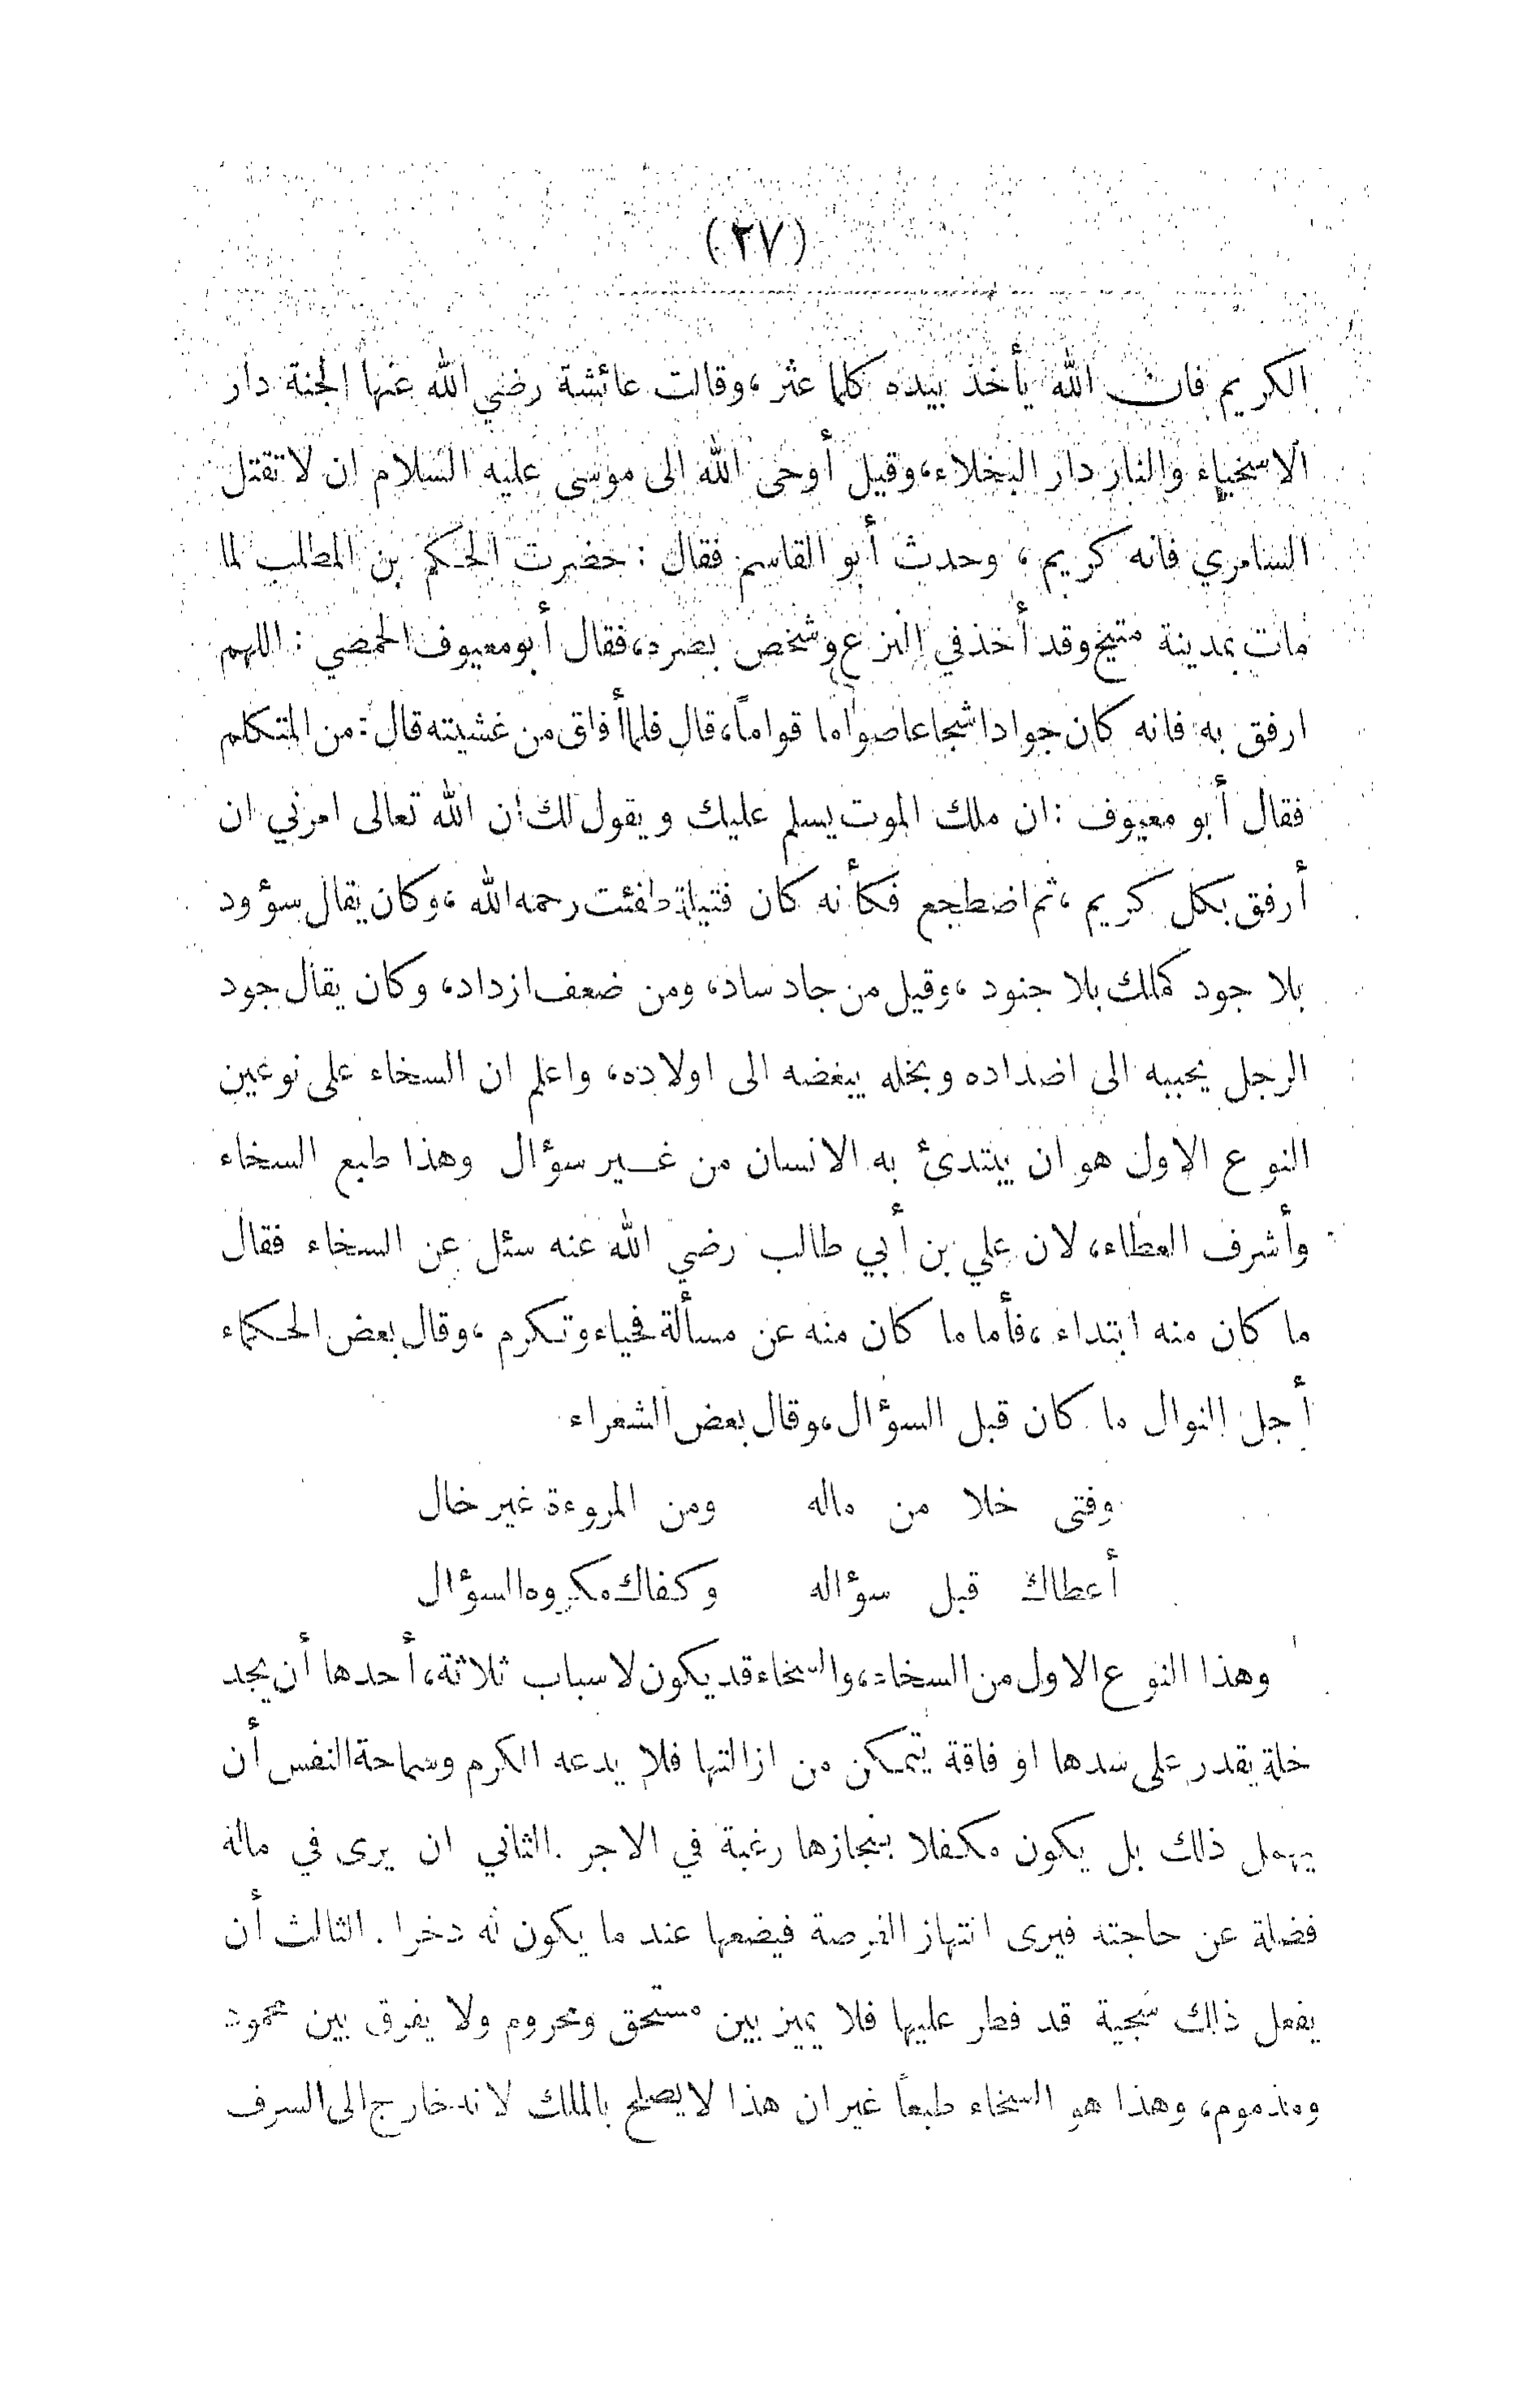 (٢٧)
الكريم فان الله يأخذ بيده كلما عثر، وقالت عائشة رضي الله عنها الجنة دار
الاسخياء والنار دار البخلاء، وقيل أوحى الله الى موسى عليه السلام ان لا تقتل
السامري فانه كريم، وحدث أبو القاسم فقال : حضرت الحكم بن المطلب لما
مات بمدينة متيخ وقد أخذ في النزع وشخص بصره، فقال أبو معيوف الحمصي : اللهم
ارفق به فانه كان جوادا شجاعا صواما قواماً، قال فلما أفاق من غشيته قال : من المتكلم
فقال أبو معيوف : ان ملك الموت يسلم عليك ويقول لك ان الله تعالى امرني ان
أرفق بكل كريم، ثم اضطجع فكأنه كان فتيلة طفئت رحمه الله، وكان يقال سؤود
بلا جود كملك بلا جنود، وقيل من جاد ساد، ومن ضعف ازداد، وكان يقال جود
الرجل يحببه الى اضداده وبخله يبغضه الى اولاده، واعلم ان السخاء على نوعين
النوع الاول هو ان يبتدئ به الانسان من غير سؤال وهذا طبع السخاء
وأشرف العطاء، لان علي بن أبي طالب رضي الله عنه سئل عن السخاء فقال
ما كان منه ابتداء، فأما ما كان منه عن مسألة فحياء وتكرم، وقال بعض الحكماء
أجل النوال ما كان قبل السؤال، وقال بعض الشعراء
وفتى خلا من ماله ومن المروءة غير خال
أعطاك قبل سؤاله وكفاك مكروه السؤال
وهذا النوع الاول من السخاء، والسخاء قد يكون لاسباب ثلاثة، أحدها أن يجد
خلة يقدر على سدها او فاقة يتمكن من ازالتها فلا يدعه الكرم وسماحة النفس أن
يهمل ذلك بل يكون مكفلا بنجازها رغبة في الاجر . الثاني ان يرى في ماله
فضلة عن حاجته فيرى انتهاز الفرصة فيضعها عند ما يكون له دخرا . الثالث أن
يفعل ذلك سجية قد فطر عليها فلا يميز بين مستحق ومحروم ولا يفرق بين محمود
ومذموم، وهذا هو السخاء طبعاً غير ان هذا لا يصلح بالملك لانه خارج الى السرف